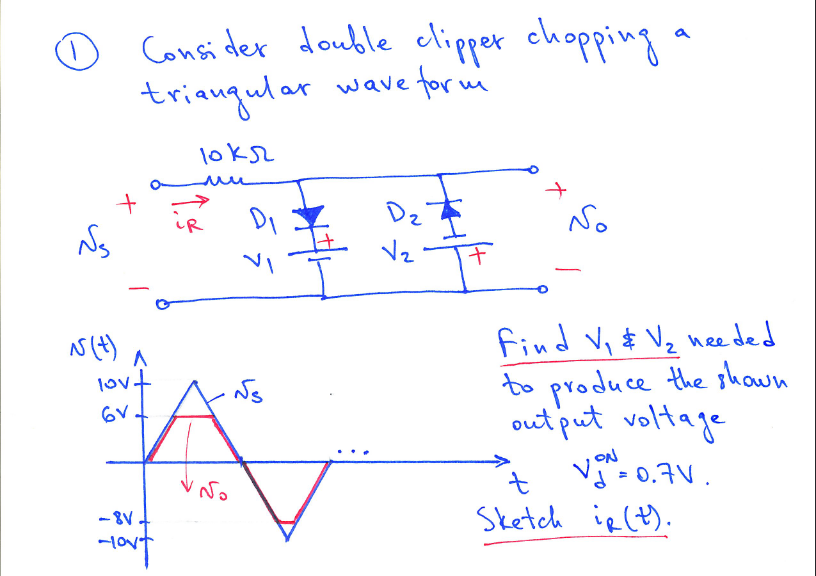 ① Consider double clipper chopping a
triangular waveform
10kΩ
+ iR D1 + D2 + No
Ns V1 V2 +
− −
N(t)
10V Ns
6V
...
No
t
-8V
-10V
Find V1 & V2 needed
to produce the shown
output voltage
Vd^ON = 0.7V.
Sketch iR(t).